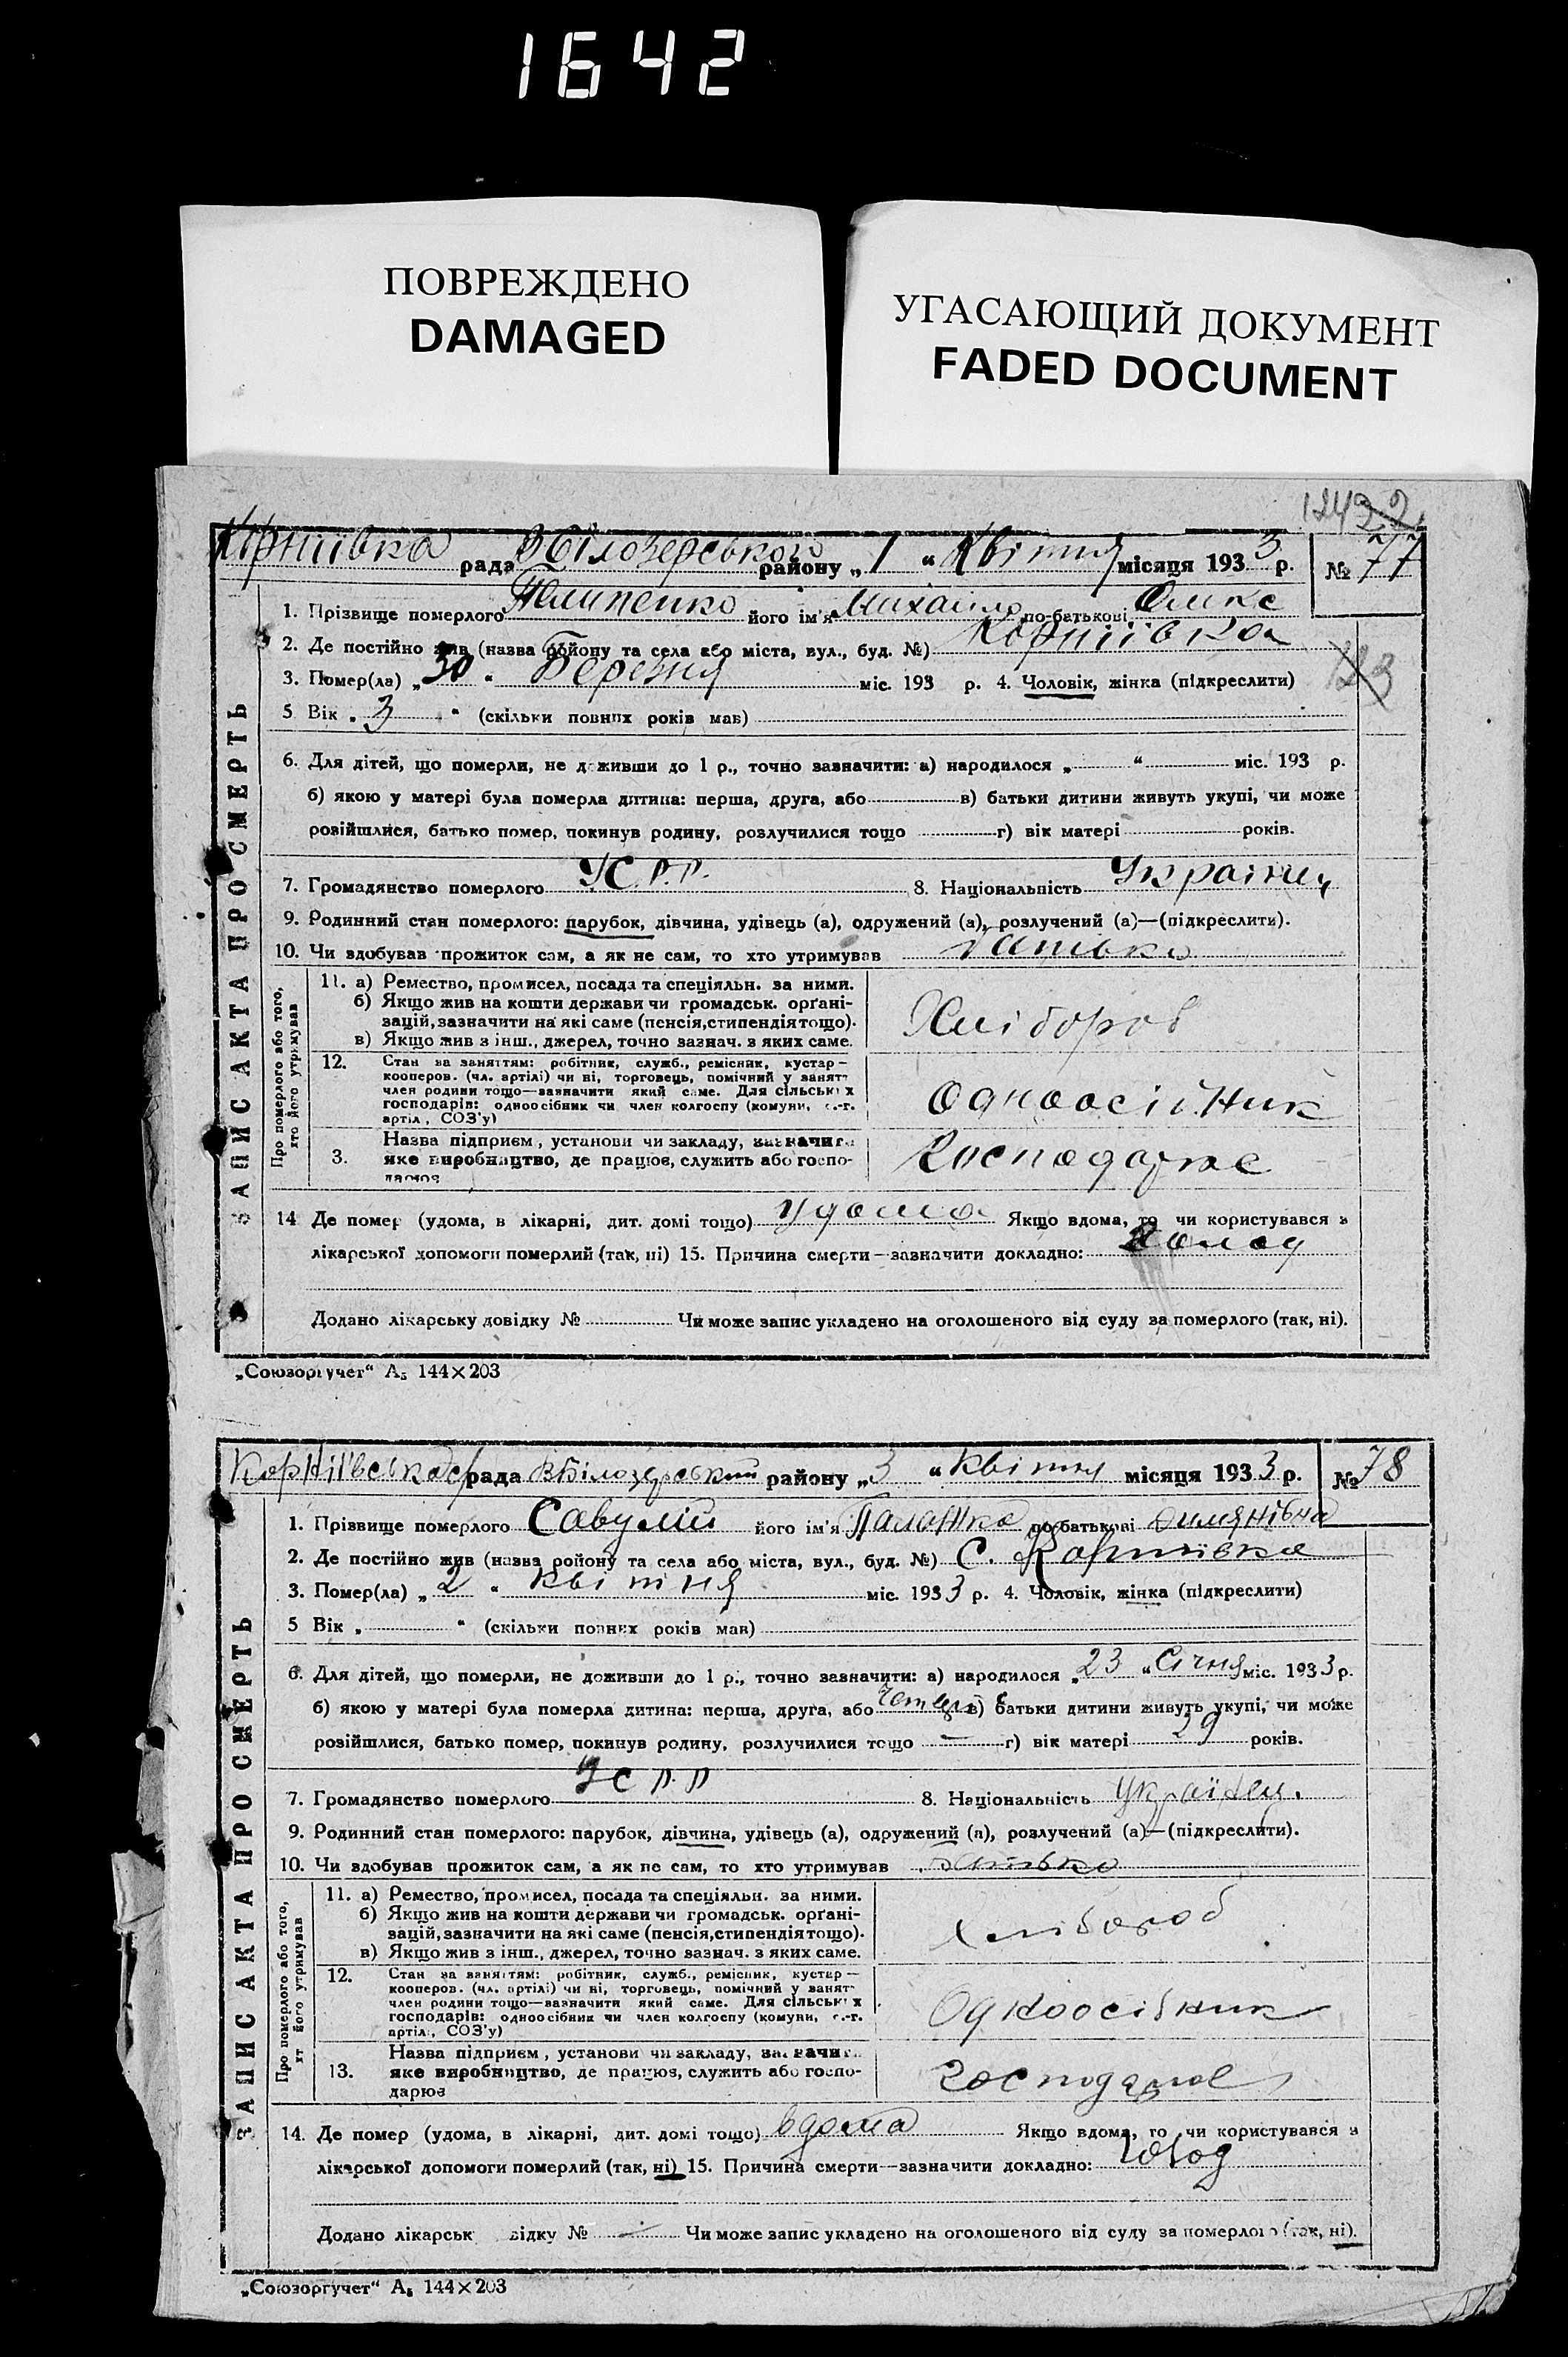 1642
ПОВРЕЖДЕНО
DAMAGED
УГАСАЮЩИЙ ДОКУМЕНТ
FADED DOCUMENT
Корніївка рада Вбілозерського району „1“ Квітня місяця 1933 р. № 77
ЗАПИС АКТА ПРО СМЕРТЬ
1. Прізвище померлого Пилипенко його ім'я Михайло по-батькові
2. Де постійно жив (назва району та села або міста, вул., буд. №) Корніївка
3. Помер(ла) „30“ Березня міс. 193 р. 4. Чоловік, жінка (підкреслити)
5 Вік „3“ (скільки повних років мав)
6. Для дітей, що померли, не доживши до 1 р., точно зазначити: а) народилося „ “ міс. 193 р.
б) якою у матері була померла дитина: перша, друга, або в) батьки дитини живуть укупі, чи може
розійшлися, батько помер, покинув родину, розлучилися тощо г) вік матері років.
7. Громадянство померлого УСРР. 8. Національність Українец
9. Родинний стан померлого: парубок, дівчина, удівець (а), одружений (а), розлучений (а)—(підкреслити).
10. Чи здобував прожиток сам, а як не сам, то хто утримував батько
Про померлого або того, хто його утримував
11. а) Ремество, промисел, посада та спеціяльн. за ними.
б) Якщо жив на кошти держави чи громадськ. орґані-
зацій, зазначити на які саме (пенсія, стипендія тощо).
в) Якщо жив з інш., джерел, точно зазнач. з яких саме.
Хлібороб
12. Стан за заняттям: робітник, служб., ремісник, кустар—
кооперов. (чл. артілі) чи ні, торговець, помічний у занят‑
член родини тощо—зазначити який саме. Для сільськ х
господарів: одноосібник чи член колгоспу (комуни, с.-г.
артіл, СОЗ'у)
Одноосібник
3. Назва підприєм, установи чи закладу, зазначит
яке виробництво, де працює, служить або госпо-
дарює
Господарює
14 Де помер (удома, в лікарні, дит. домі тощо) удома Якщо вдома, то чи користувався з
лікарської допомоги померлий (так, ні) 15. Причина смерти—зазначити докладно: Голод
Додано лікарську довідку № Чи може запис укладено на оголошеного від суду за померлого (так, ні).
„Союзоргучет“ А₅ 144×203
Корніївська рада Вбілозерський району „3“ Квітня місяця 1933 р. № 78
ЗАПИС АКТА ПРО СМЕРТЬ
1. Прізвище померлого Савулій його ім'я Палажка по-батькові
2. Де постійно жив (назва району та села або міста, вул., буд. №) С. Корніївка
3. Помер(ла) „2“ Квітня міс. 1933 р. 4. Чоловік, жінка (підкреслити)
5 Вік „ “ (скільки повних років мав)
6. Для дітей, що померли, не доживши до 1 р., точно зазначити: а) народилося „23“ Січня міс. 1933 р.
б) якою у матері була померла дитина: перша, друга, або в) батьки дитини живуть укупі, чи може
розійшлися, батько помер, покинув родину, розлучилися тощо — г) вік матері 29 років.
7. Громадянство померлого УСРР 8. Національність Українец.
9. Родинний стан померлого: парубок, дівчина, удівець (а), одружений (а), розлучений (а)—(підкреслити).
10. Чи здобував прожиток сам, а як не сам, то хто утримував батько
Про померлого або того, хт його утримував
11. а) Ремество, промисел, посада та спеціяльн. за ними.
б) Якщо жив на кошти держави чи громадськ. орґані-
зацій, зазначити на які саме (пенсія, стипендія тощо).
в) Якщо жив з інш., джерел, точно зазнач. з яких саме.
хлібороб
12. Стан за заняттям: робітник, служб., ремісник, кустар—
кооперов. (чл. артілі) чи ні, торговець, помічний у занят‑
член родини тощо—зазначити який саме. Для сільськ х
господарів: одноосібник чи член колгоспу (комуни, с.-г.
артіл, СОЗ'у)
Одноосібник
13. Назва підприєм, установи чи закладу, зазначит
яке виробництво, де працює, служить або госпо-
дарює
господарює
14. Де помер (удома, в лікарні, дит. домі тощо) вдома Якщо вдома, то чи користувався з
лікарської допомоги померлий (так, ні) 15. Причина смерти—зазначити докладно: голод
Додано лікарськ відку № — Чи може запис укладено на оголошеного від суду за померлого (так, ні).
„Союзоргучет“ А₅ 144×203